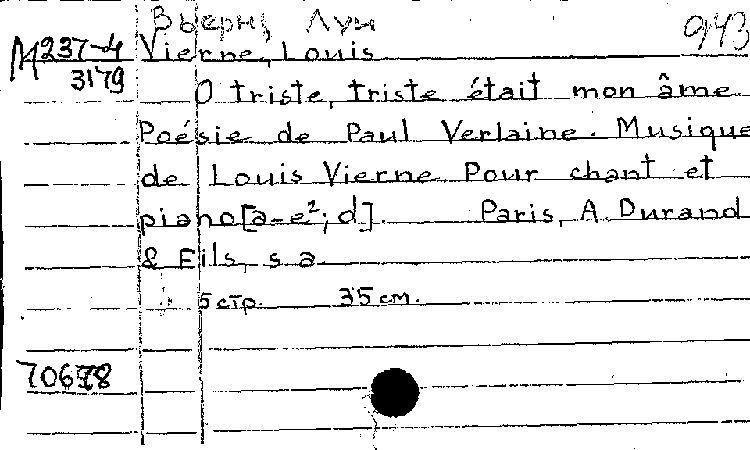 Вьерн, Луи
943
М237-4 Vierne, Louis
3179
O triste, triste était mon âme
Poésie de Paul Verlaine. Musique
de Louis Vierne Pour chant et
piano[a-e²; d]. Paris, A. Durand
& Fils, s a
5 стр. 35 см.
70678